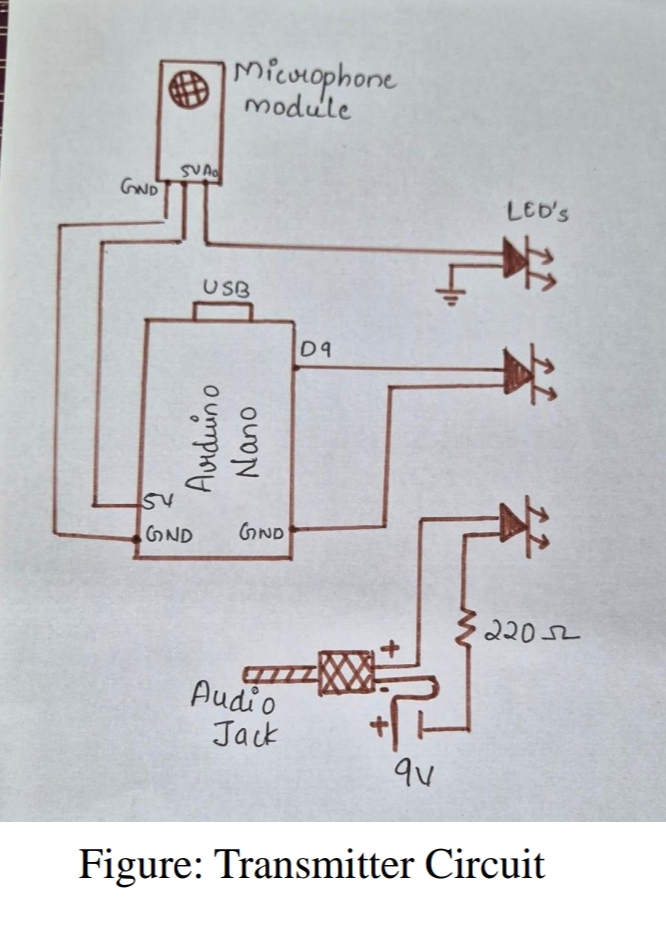 Microphone
module
GND
5V A0
LED's
USB
D9
Arduino
Nano
5V
GND
GND
+
220 Ω
-
Audio
Jack
+
9V
Figure: Transmitter Circuit